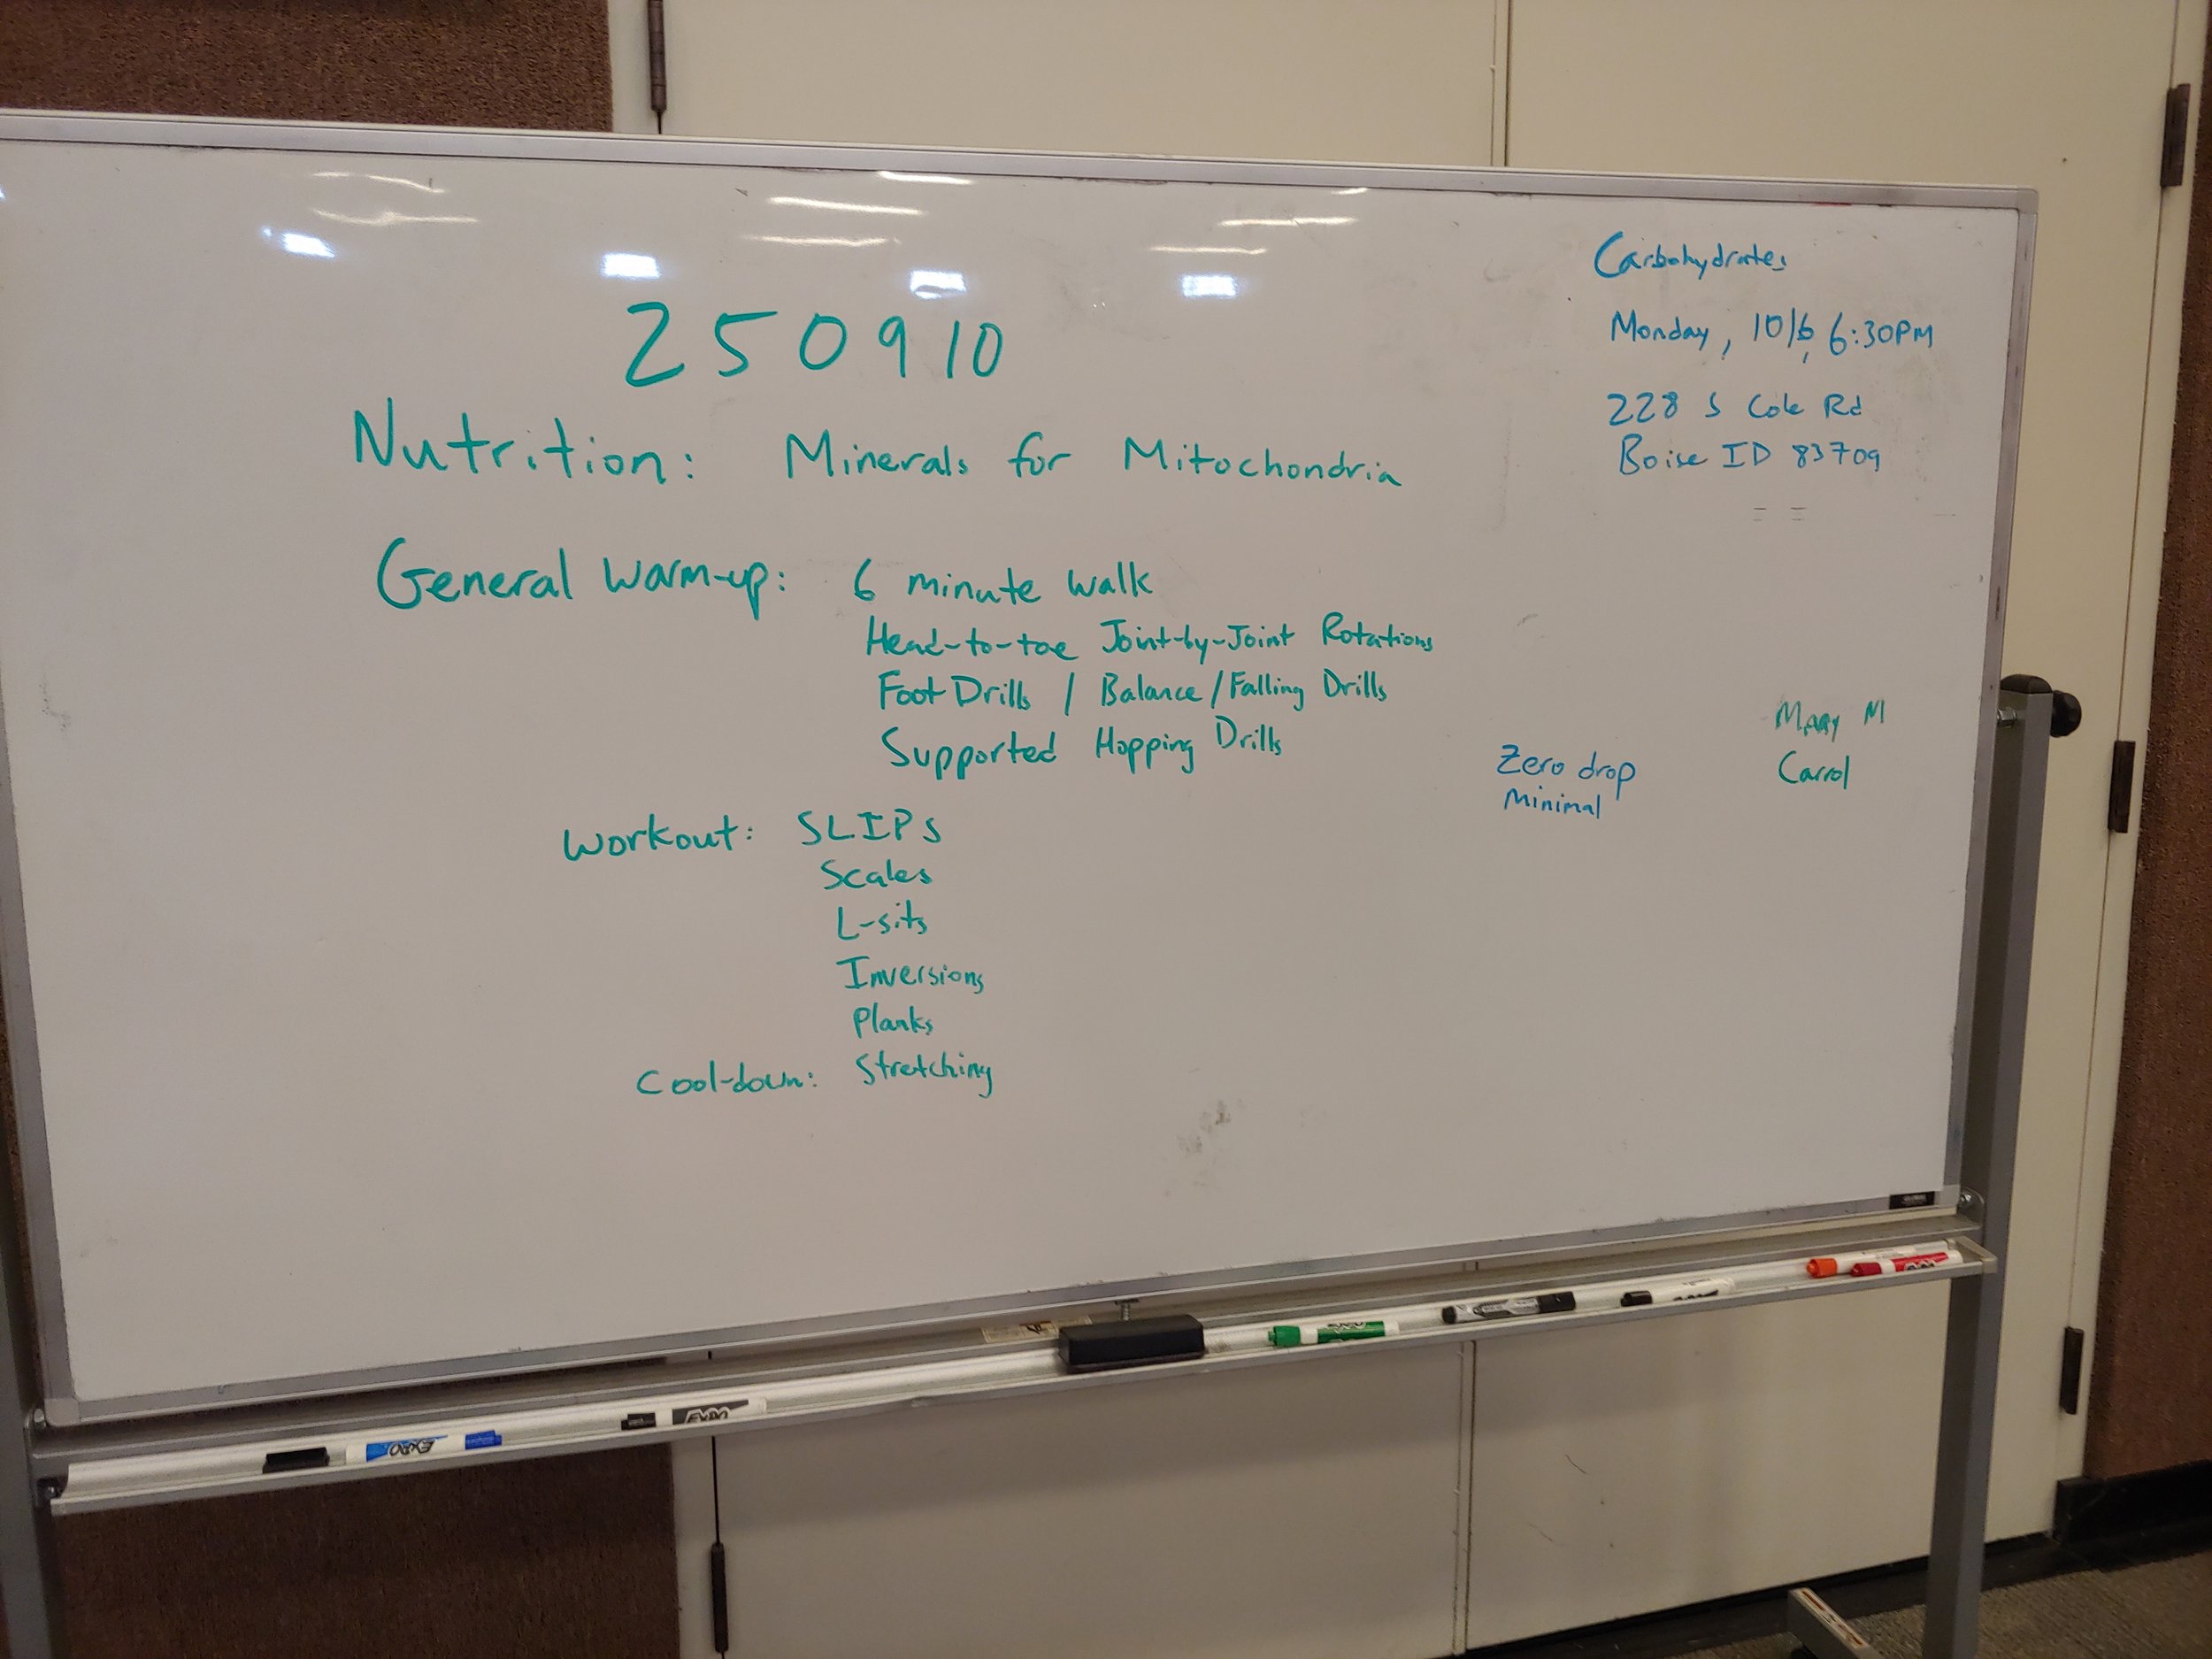 250910
Nutrition: Minerals for Mitochondria
General Warm-up: 6 minute walk
Head-to-toe Joint-by-Joint Rotations
Foot Drills / Balance/Falling Drills
Supported Hopping Drills
Workout: SLIPs
Scales
L-sits
Inversions
Planks
Cool-down: Stretching
Carbohydrates
Monday, 10/6, 6:30PM
228 S Cole Rd
Boise ID 83709
Zero drop
Minimal
Mary M
Carrol
EXPO
EXPO